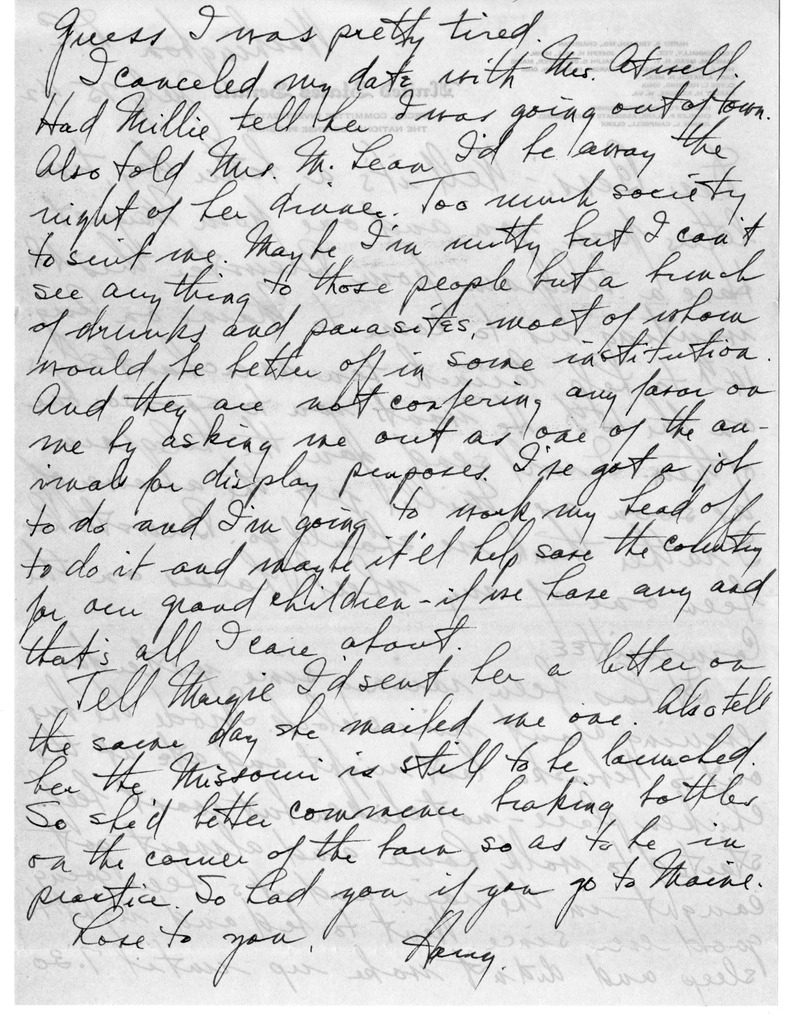 Guess I was pretty tired.
I canceled my date with Mrs. Atwell.
Had Millie tell her I was going out of town.
Also told Mrs. McLean I'd be away the
night of her dinner. Too much society
to suit me. Maybe I'm nutty but I can't
see anything to those people but a bunch
of drunks and parasites, most of whom
would be better off in some institution.
And they are not confering any favor on
me by asking me out as one of the an-
imals for display purposes. I've got a job
to do and I'm going to work my head off
to do it and maybe it'll help save the country
for our grandchildren - if we have any and
that's all I care about.
Tell Margie I'd sent her a letter on
the same day she mailed me one. Also tell
her the Missouri is still to be launched.
So she'd better commence braking bottles
on the corner of the barn so as to be in
practice. So had you if you go to Maine.
Love to you,
Harry.